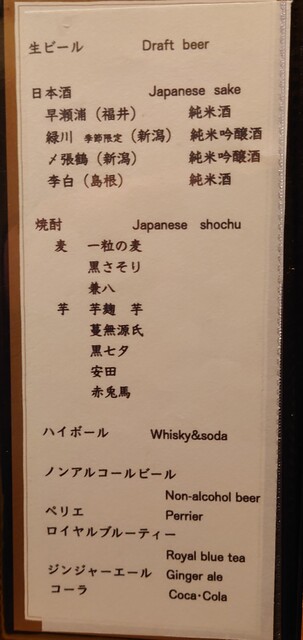 生ビール Draft beer
日本酒 Japanese sake
早瀬浦（福井） 純米酒
緑川 季節限定（新潟） 純米吟醸酒
〆張鶴（新潟） 純米吟醸酒
李白（島根） 純米酒
焼酎 Japanese shochu
麦 一粒の麦
黒さそり
兼八
芋 芋麹 芋
蔓無源氏
黒七夕
安田
赤兎馬
ハイボール Whisky&soda
ノンアルコールビール
Non-alcohol beer
ペリエ Perrier
ロイヤルブルーティー
Royal blue tea
ジンジャーエール Ginger ale
コーラ Coca・Cola